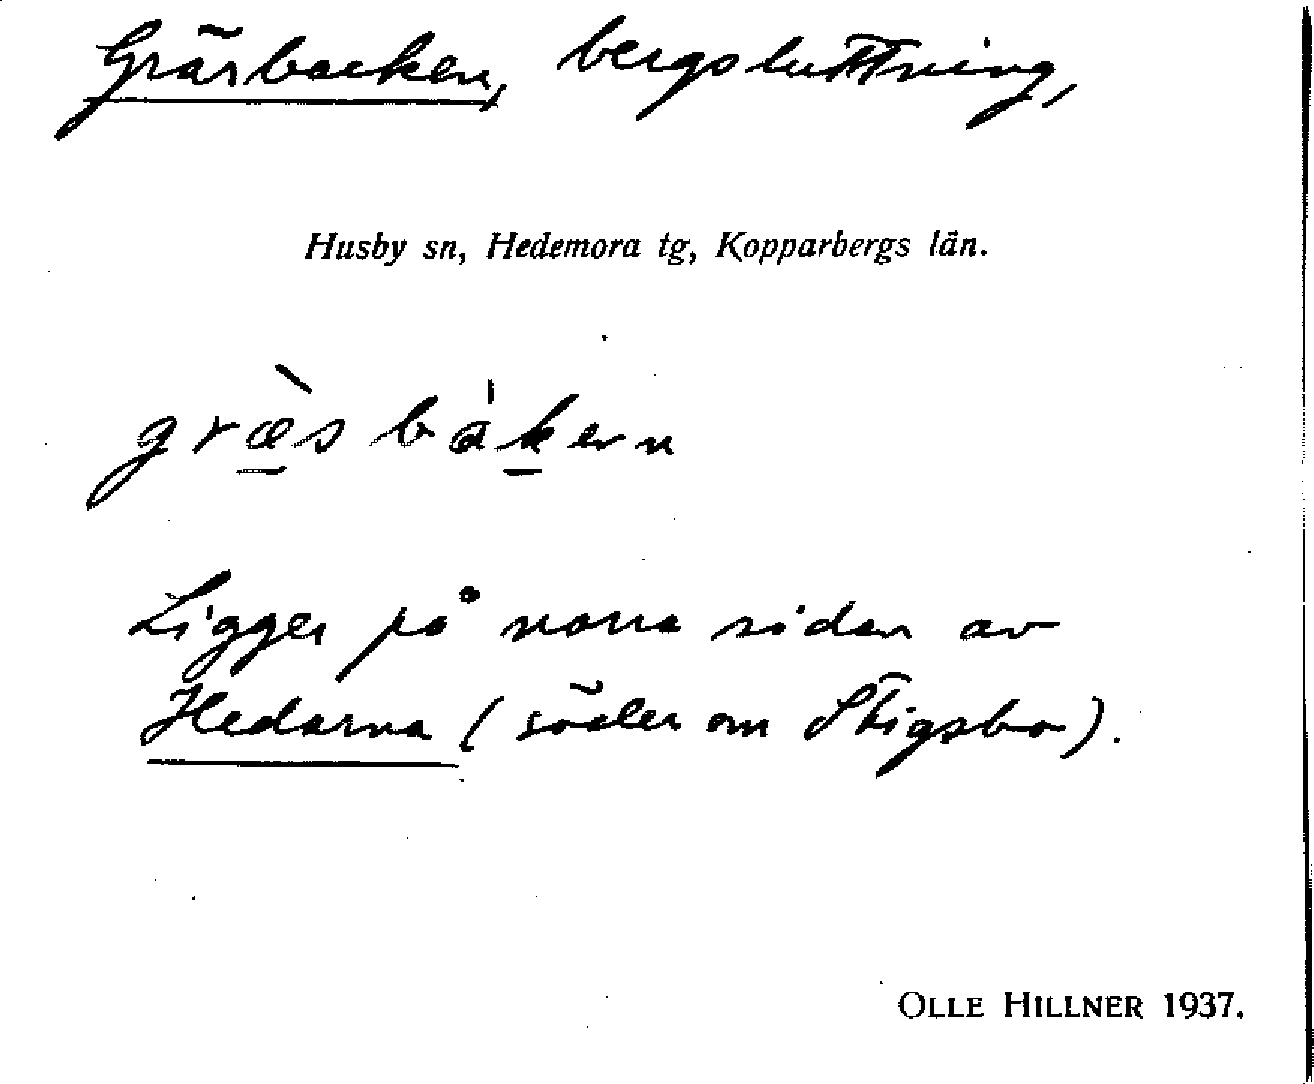 Gräsbacken, bergsluttning,
Husby sn, Hedemora tg, Kopparbergs län.
græ̀sbàkern
Ligger på norra sidan av
Hedarna (söder om Stigsbo).
OLLE HILLNER 1937.